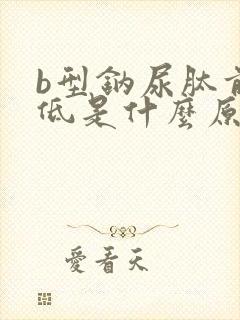 b型鈉尿肽前
低是什麼原
愛看天